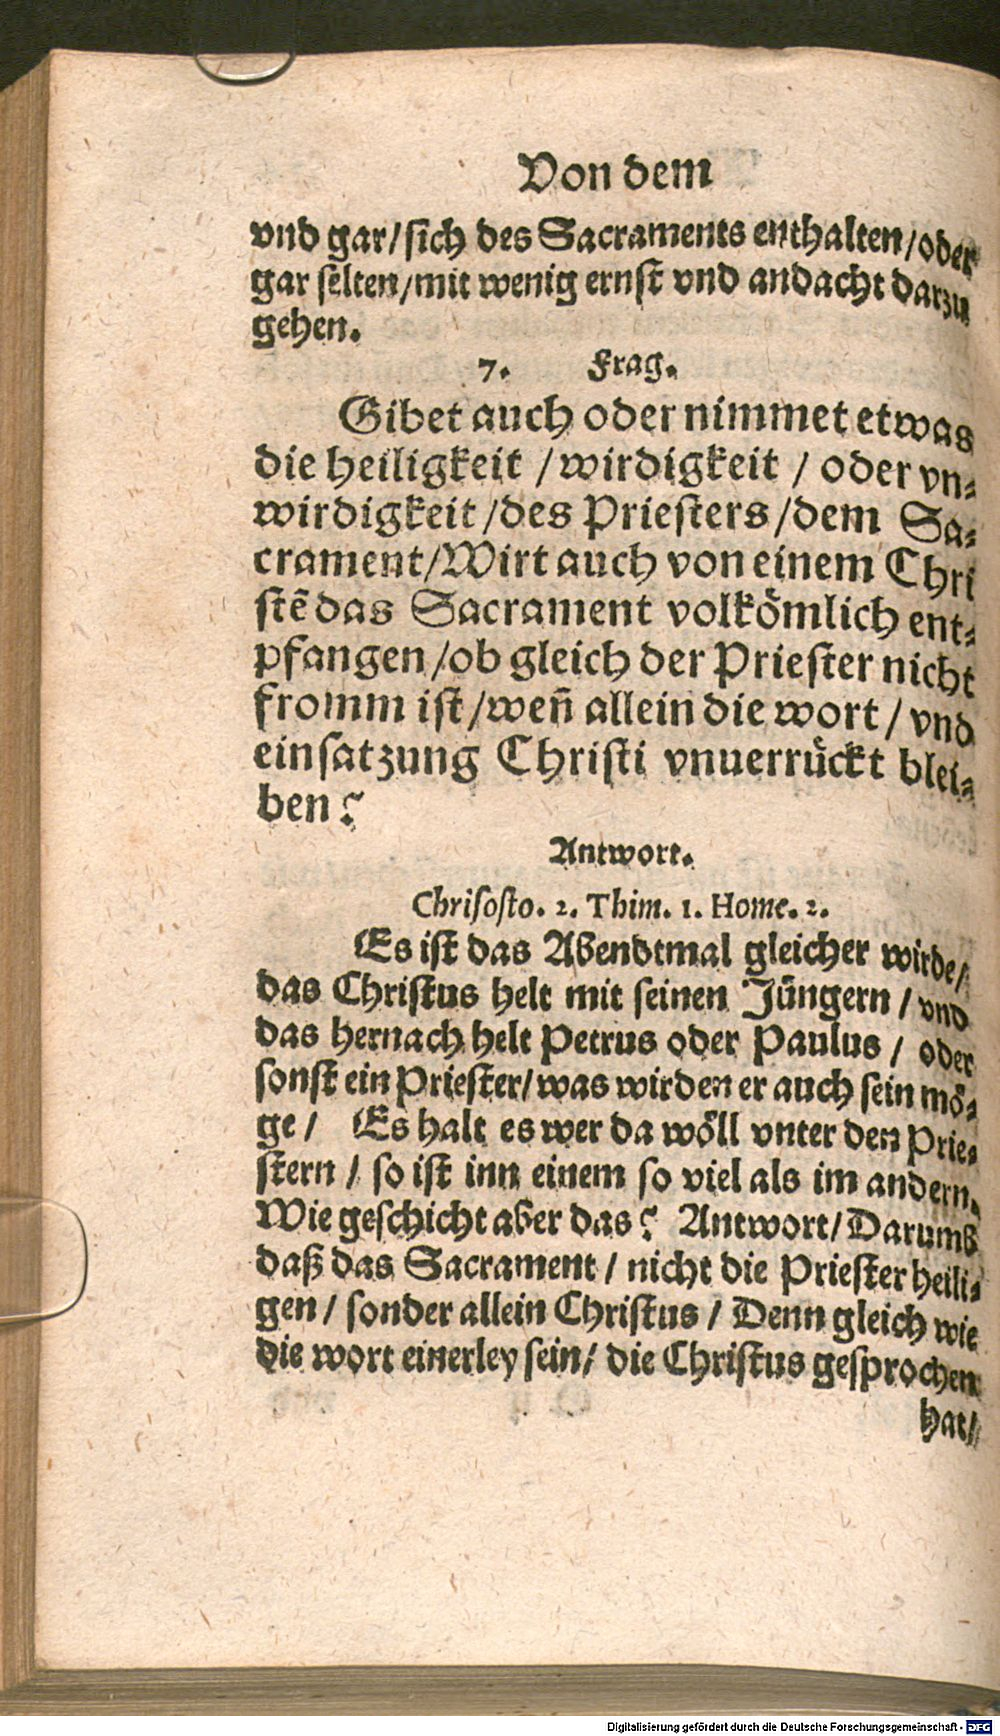 Von dem
vnd gar/sich des Sacraments enthalten/oder
gar selten/mit wenig ernst vnd andacht darzu
gehen.
7. Frag.
Gibet auch oder nimmet etwas
die heiligkeit /wirdigkeit / oder vn-
wirdigkeit/des Priesters/dem Sa-
crament/Wirt auch von einem Chri
stẽ das Sacrament volkömlich ent-
pfangen/ob gleich der Priester nicht
fromm ist/weñ allein die wort/ vnd
einsatzung Christi vnuerrückt blei-
ben?
Antwort.
Chrisosto. 2. Thim. 1. Home. 2.
Es ist das Abendtmal gleicher wirde/
das Christus helt mit seinen Jüngern / vnd
das hernach helt Petrus oder Paulus / oder
sonst ein Priester/was wirden er auch sein mö-
ge / Es halt es wer da wöll vnter den Prie-
stern / so ist inn einem so viel als im andern.
Wie geschicht aber das? Antwort/Darumb
daß das Sacrament / nicht die Priester heili-
gen/ sonder allein Christus / Denn gleich wie
die wort einerley sein/ die Christus gesprochen
hat/
Digitalisierung gefördert durch die Deutsche Forschungsgemeinschaft - DFG